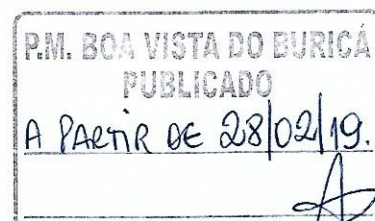 P.M. BOA VISTA DO BURICÁ
PUBLICADO
A PARTIR DE 28/02/19.